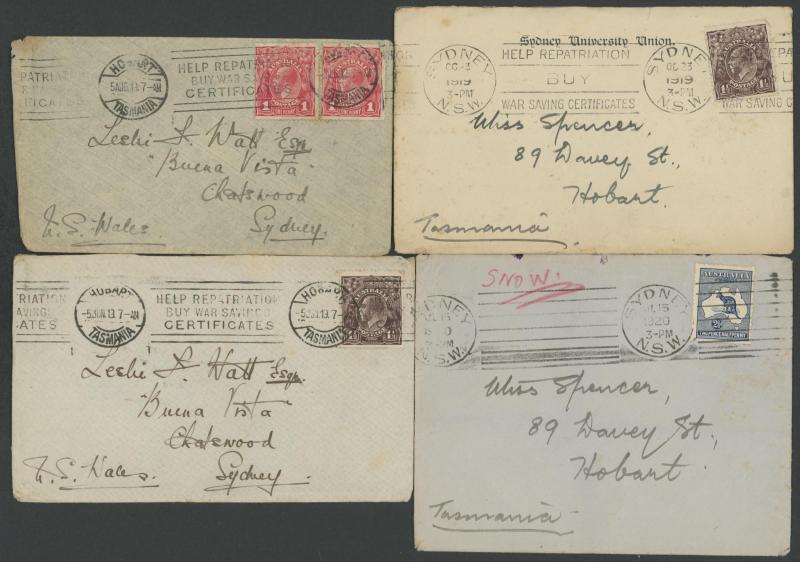 HOBART
5 AUG 19. 7-AM
TASMANIA
PATRIATION
CERTIFICATES
HELP REPATRIATION
BUY WAR SAV
CERTIFICATES
1 1
Leslie F. Watt Esq.
"Buena Vista"
Chatswood
N. S. Wales. Sydney.
Sydney University Union.
SYDNEY
OC 23
1919
3-PM
N.S.W.
HELP REPATRIATION
BUY
WAR SAVING CERTIFICATES
SYDNEY
OC 23
1919
3-PM
N.S.W.
WAR SAVING CER
Miss Spencer,
89 Davey St.,
Hobart.
Tasmania.
TRIATION
SAVING
CATES
HOBART
7-AM
TASMANIA
HELP REPATRIATION
BUY WAR SAVING
CERTIFICATES
HOBART
7-AM
TASMANIA
Leslie F. Watt Esq.
"Buena Vista"
Chatswood
N. S. Wales. Sydney.
SNOW.
SYDNEY
N.S.W.
SYDNEY
JL 15
1920
3-PM
N.S.W.
AUSTRALIA
Miss Spencer,
89 Davey St.,
Hobart.
Tasmania.